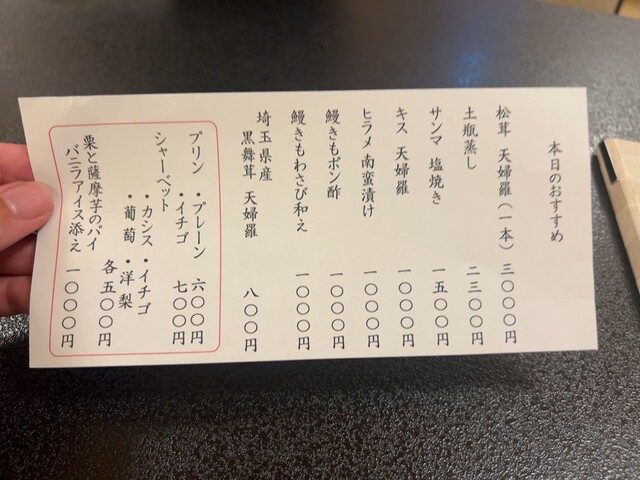 本日のおすすめ
松茸 天婦羅(一本) 三〇〇〇円
土瓶蒸し 二三〇〇円
サンマ 塩焼き 一五〇〇円
キス 天婦羅 一〇〇〇円
ヒラメ 南蛮漬け 一〇〇〇円
鰻きもポン酢 一〇〇〇円
鰻きもわさび和え 一〇〇〇円
埼玉県産
黒舞茸 天婦羅 八〇〇円
プリン ・プレーン 六〇〇円
・イチゴ 七〇〇円
シャーベット
・カシス ・イチゴ
・葡萄 ・洋梨
各五〇〇円
栗と薩摩芋のパイ
バニラアイス添え 一〇〇〇円